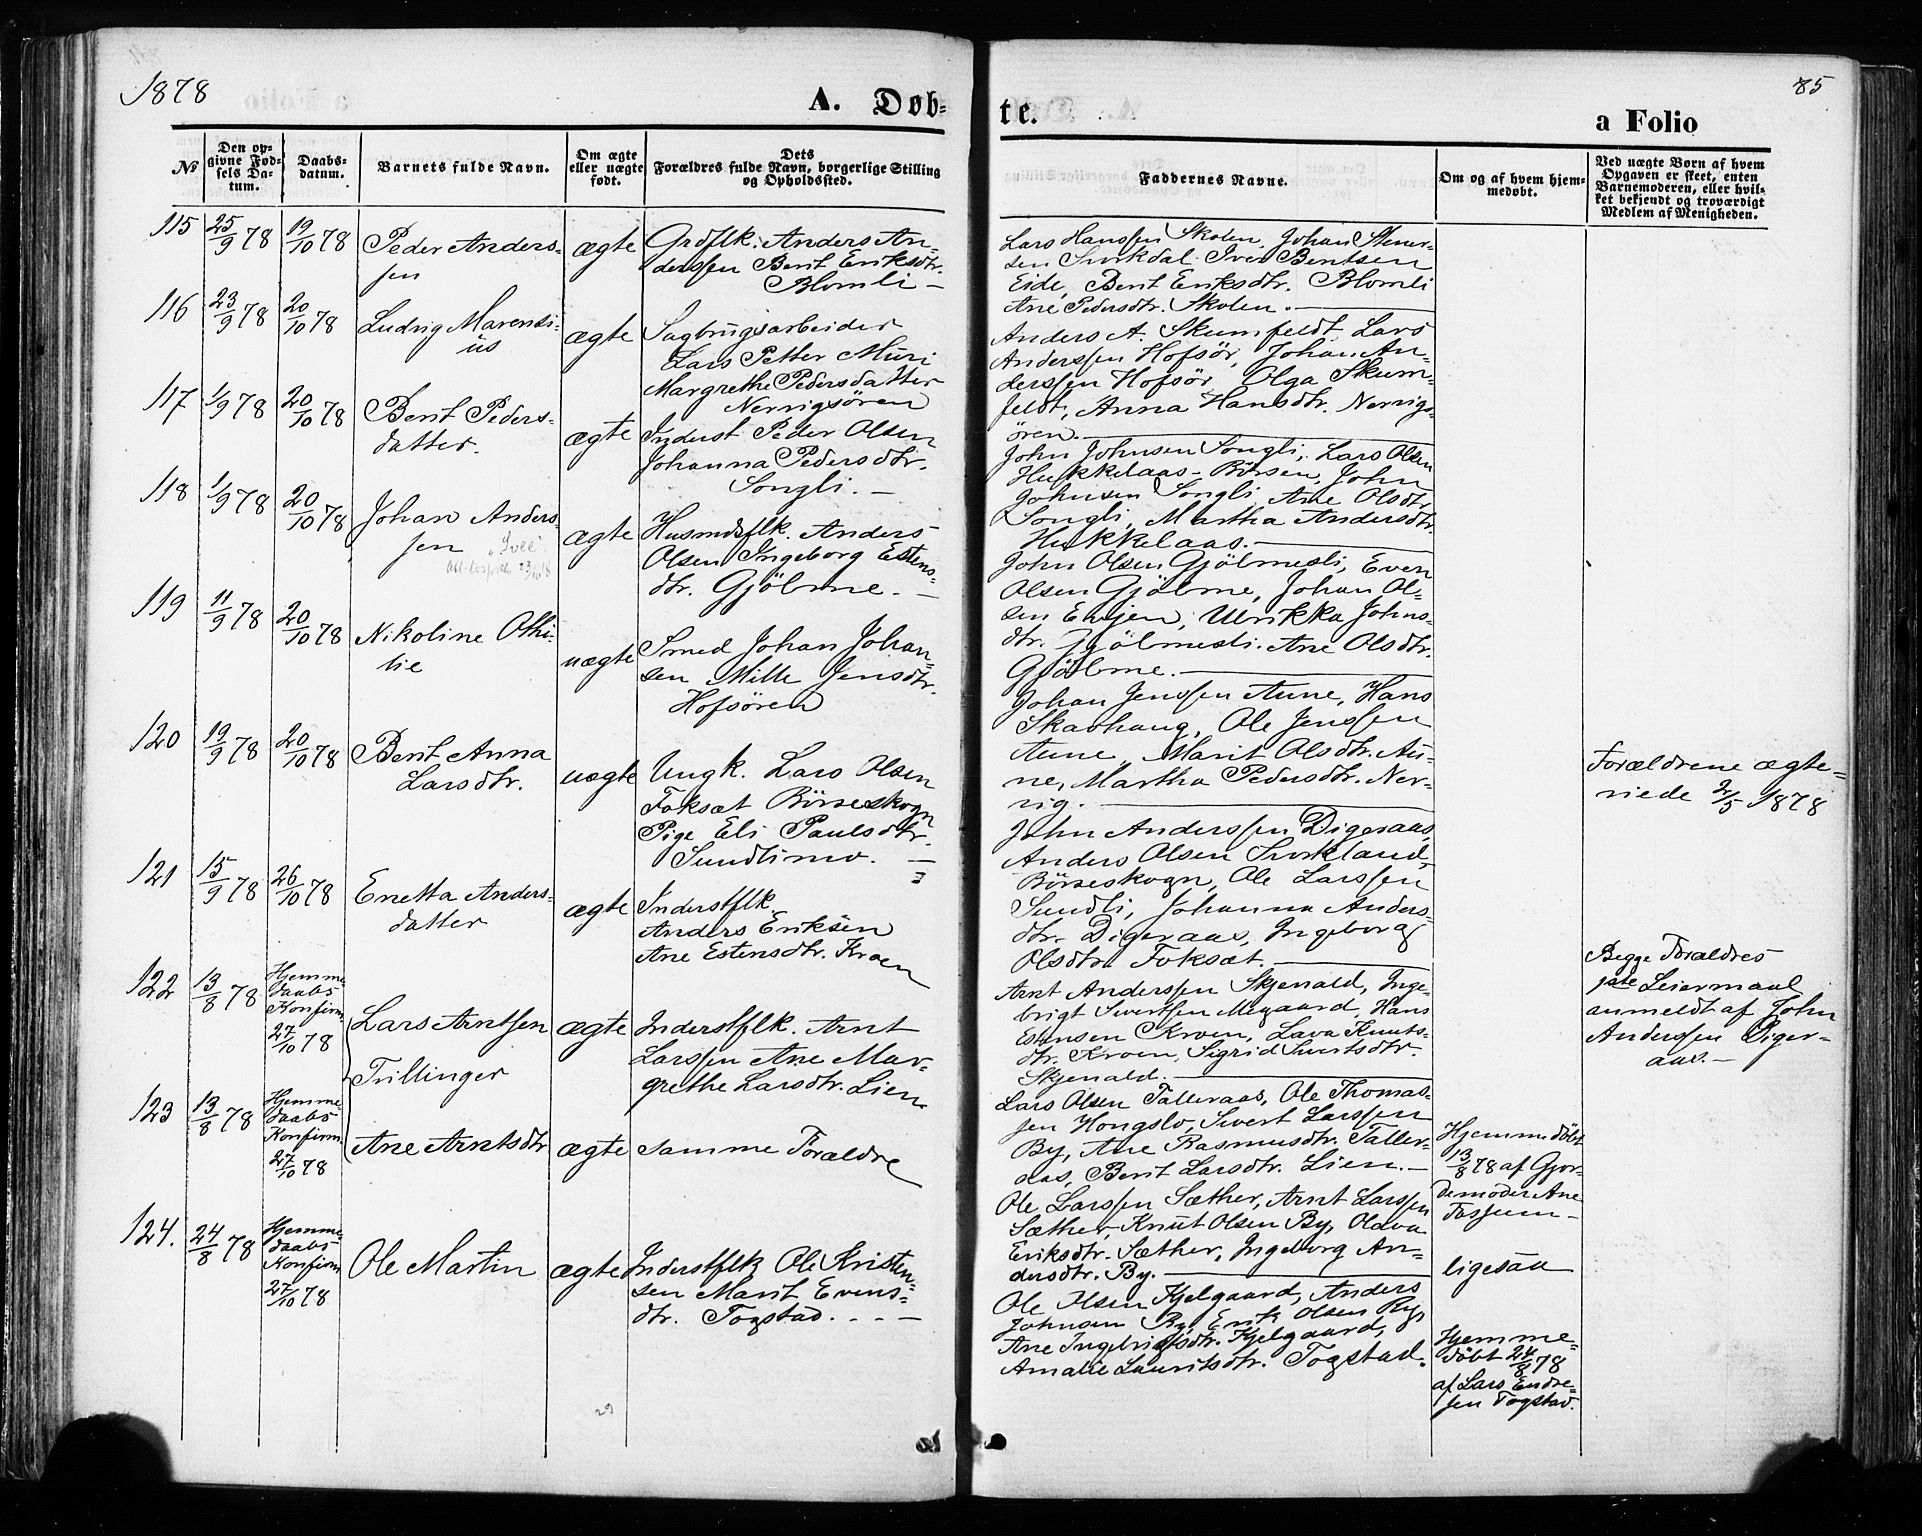 1878
A. Døb-
te.
85
a Folio
№
Den op-
givne Fød-
sels Da-
tum.
Daabs-
datum.
Barnets fulde Navn.
Om ægte
eller uægte
født.
Dets
Forældres fulde Navn, borgerlige Stilling
og Opholdssted.
Faddernes Navne.
Om og af hvem hjem-
medøbt.
Ved uægte Børn af hvem
Opgaven er skeet, enten
Barnemoderen, eller hvil-
ket bekjendt og troværdigt
Medlem af Menigheden.
115 25/9 78 19/10 78 Peder Anders-
sen
ægte
Grdflk. Anders An-
derssen Berit Eriksdtr.
Blomli -
Lars Hanssen Skolen, Johan Stener-
sen Surkdal. Iver Bentsen
Eide, Berit Eriksdtr. Blomli
Ane Pedersdtr. Skolen. -
116 23/9 78 20/10 78 Ludvig Marensi-
us
ægte
Sagbrugsarbeider
Lars Petter Muri
Margrethe Pedersdatter
Nervigsören
Anders A. Skumfeldt, Lars
Anderssen Hofsör, Johan An-
derssen Hofsör, Olga Skum-
feldt, Anna Hansdtr. Nervigs-
ören. -
117 1/9 78 20/10 78 Berit Peders-
datter.
ægte
Inderst Peder Olsen
Johanna Pedersdtr.
Songli. -
John Johnsen Songli, Lars Olsen
Hukkelaas - Börsen, John
Johnsen Songli, Ane Olsdtr.
Songli, Martha Andersdtr.
Hukkelaas. -
118 1/9 78 20/10 78 Johan Anders-
sen
23/10 18
ægte
Husmdsflk. Anders
Olsen Ingeborg Estens-
dtr. Gjölme. -
John Olsen Gjölmesli, Even
Olsen Gjölme, Johan Ol-
sen Evjen, Ulrikka Johns-
dtr. Gjölmesli. Ane Olsdtr.
Gjölme. -
119 11/9 78 20/10 78 Nikoline Othi-
lie
uægte
Smed Johan Johan-
sen Mille Jensdtr.
Hofsören
Johan Jenssen Aune, Hans
Skarhaug, Ole Jenssen
Aune, Marit Olsdtr. Au-
ne, Martha Pedersdtr. Ner-
vig. -
Forældrene ægte-
viede 2/5 1878
120 19/9 78 20/10 78 Berit Anna
Larsdtr.
uægte
Ungk. Lars Olsen
Foksæt Börseskogn
Pige Eli Paulsdtr.
Sundlimo. -
John Anderssen Digeraas,
Anders Olsen Surkland,
Börseskogn, Ole Larssen
Sundli, Johanna Anders-
dtr. Digeraas, Ingeborg
Olsdtr. Foksæt. -
Begge Forældres
1ste Leiermaal
anmeldt af John
Anderssen Diger-
aas. -
121 15/9 78 26/10 78 Enetta Anders-
datter
ægte
Inderstflk.
Anders Eriksen
Ane Estensdtr. Kroen
Arnt Anderssen Skjenald, Inge-
brigt Sivertsen Megaard, Hans
Estensen Kroen, Lava Knuts-
dtr. Kroen, Sigrid Sivertsdtr.
Skjenald. -
122 13/8 78 Hjemme-
daabs
Konfirm.
27/10 78
Lars Arntsen
Trillinger
ægte
Inderstflk. Arnt
Larssen Ane Mar-
grethe Larsdtr. Lien
Lars Olsen Talleraas, Ole Thomas-
sen Hongslo, Sivert Larssen
By, Ane Rasmusdtr. Taller-
aas, Berit Larsdtr. Lien. -
Hjemmedöbt
13/8 78 af Gjor-
demoder Ane
Fossum -
123 13/8 78 Hjemme-
daabs
Konfirm.
27/10 78
Ane Arntsdtr
ægte
samme Forældre
Ole Larssen Sæther, Arnt Larssen
Sæther, Knut Olsen By, Olava
Eriksdtr. Sæther, Ingeborg An-
dersdtr. By. -
ligesaa
124. 24/8 78 Hjemme-
daabs
Konfirm
27/10 78
Ole Martin
ægte
Inderstflk Ole Kristen-
sen Marit Evens-
dtr. Togstad. - - -
Ole Olsen Kjelgaard, Anders
Johnsen By, Erik Olsen By,
Ane Ingebrigtsdtr. Kjelgaard,
Amalie Lauritsdtr. Togstad.
Hjemme-
döbt 24/8 78
af Lars Endre-
sen Togstad.